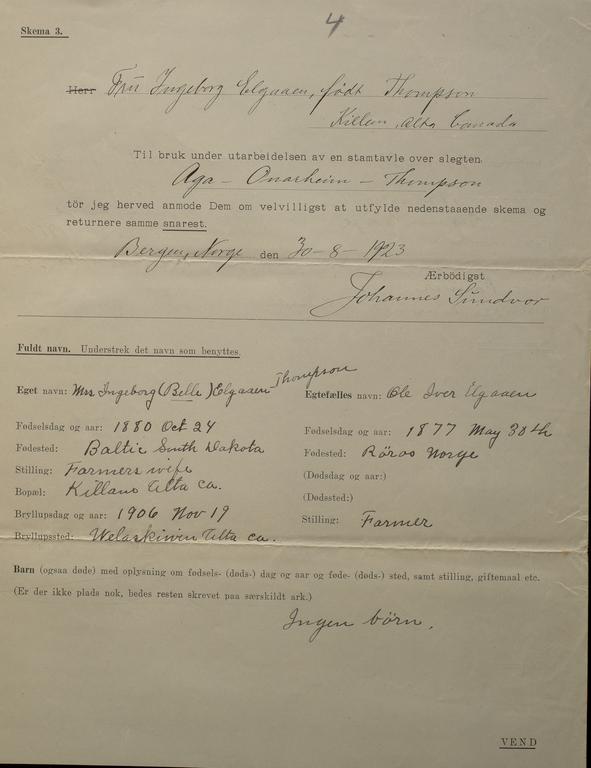 4
Skema 3.
Herr Fru Ingeborg Elgaaen, født Thompson
Killem, Alta Canada
Til bruk under utarbeidelsen av en stamtavle over slegten.
Aga - Onarheim - Thompson
tör jeg herved anmode Dem om velvilligst at utfylde nedenstaaende skema og
returnere samme snarest.
Bergen, Norge den 30-8-1923
Ærbödigst
Johannes Sundvor
Fuldt navn. Understrek det navn som benyttes.
Eget navn: Mrs Ingeborg (Belle) Elgaaen - Thompson
Egtefælles navn: Ole Iver Elgaaen
Fødselsdag og aar: 1880 Oct 24
Fødselsdag og aar: 1877 May 30th
Fødested: Baltic South Dakota
Fødested: Röros Norge
Stilling: Farmers wife
(Dødsdag og aar:)
Bopæl: Killam Alta Ca.
(Dødssted:)
Bryllupsdag og aar: 1906 Nov 19
Stilling: Farmer
Bryllupssted: Wetaskiwin Alta Ca.
Barn (ogsaa døde) med oplysning om fødsels- (døds-) dag og aar og føde- (døds-) sted, samt stilling, giftemaal etc.
(Er der ikke plads nok, bedes resten skrevet paa særskildt ark.)
Ingen börn.
VEND